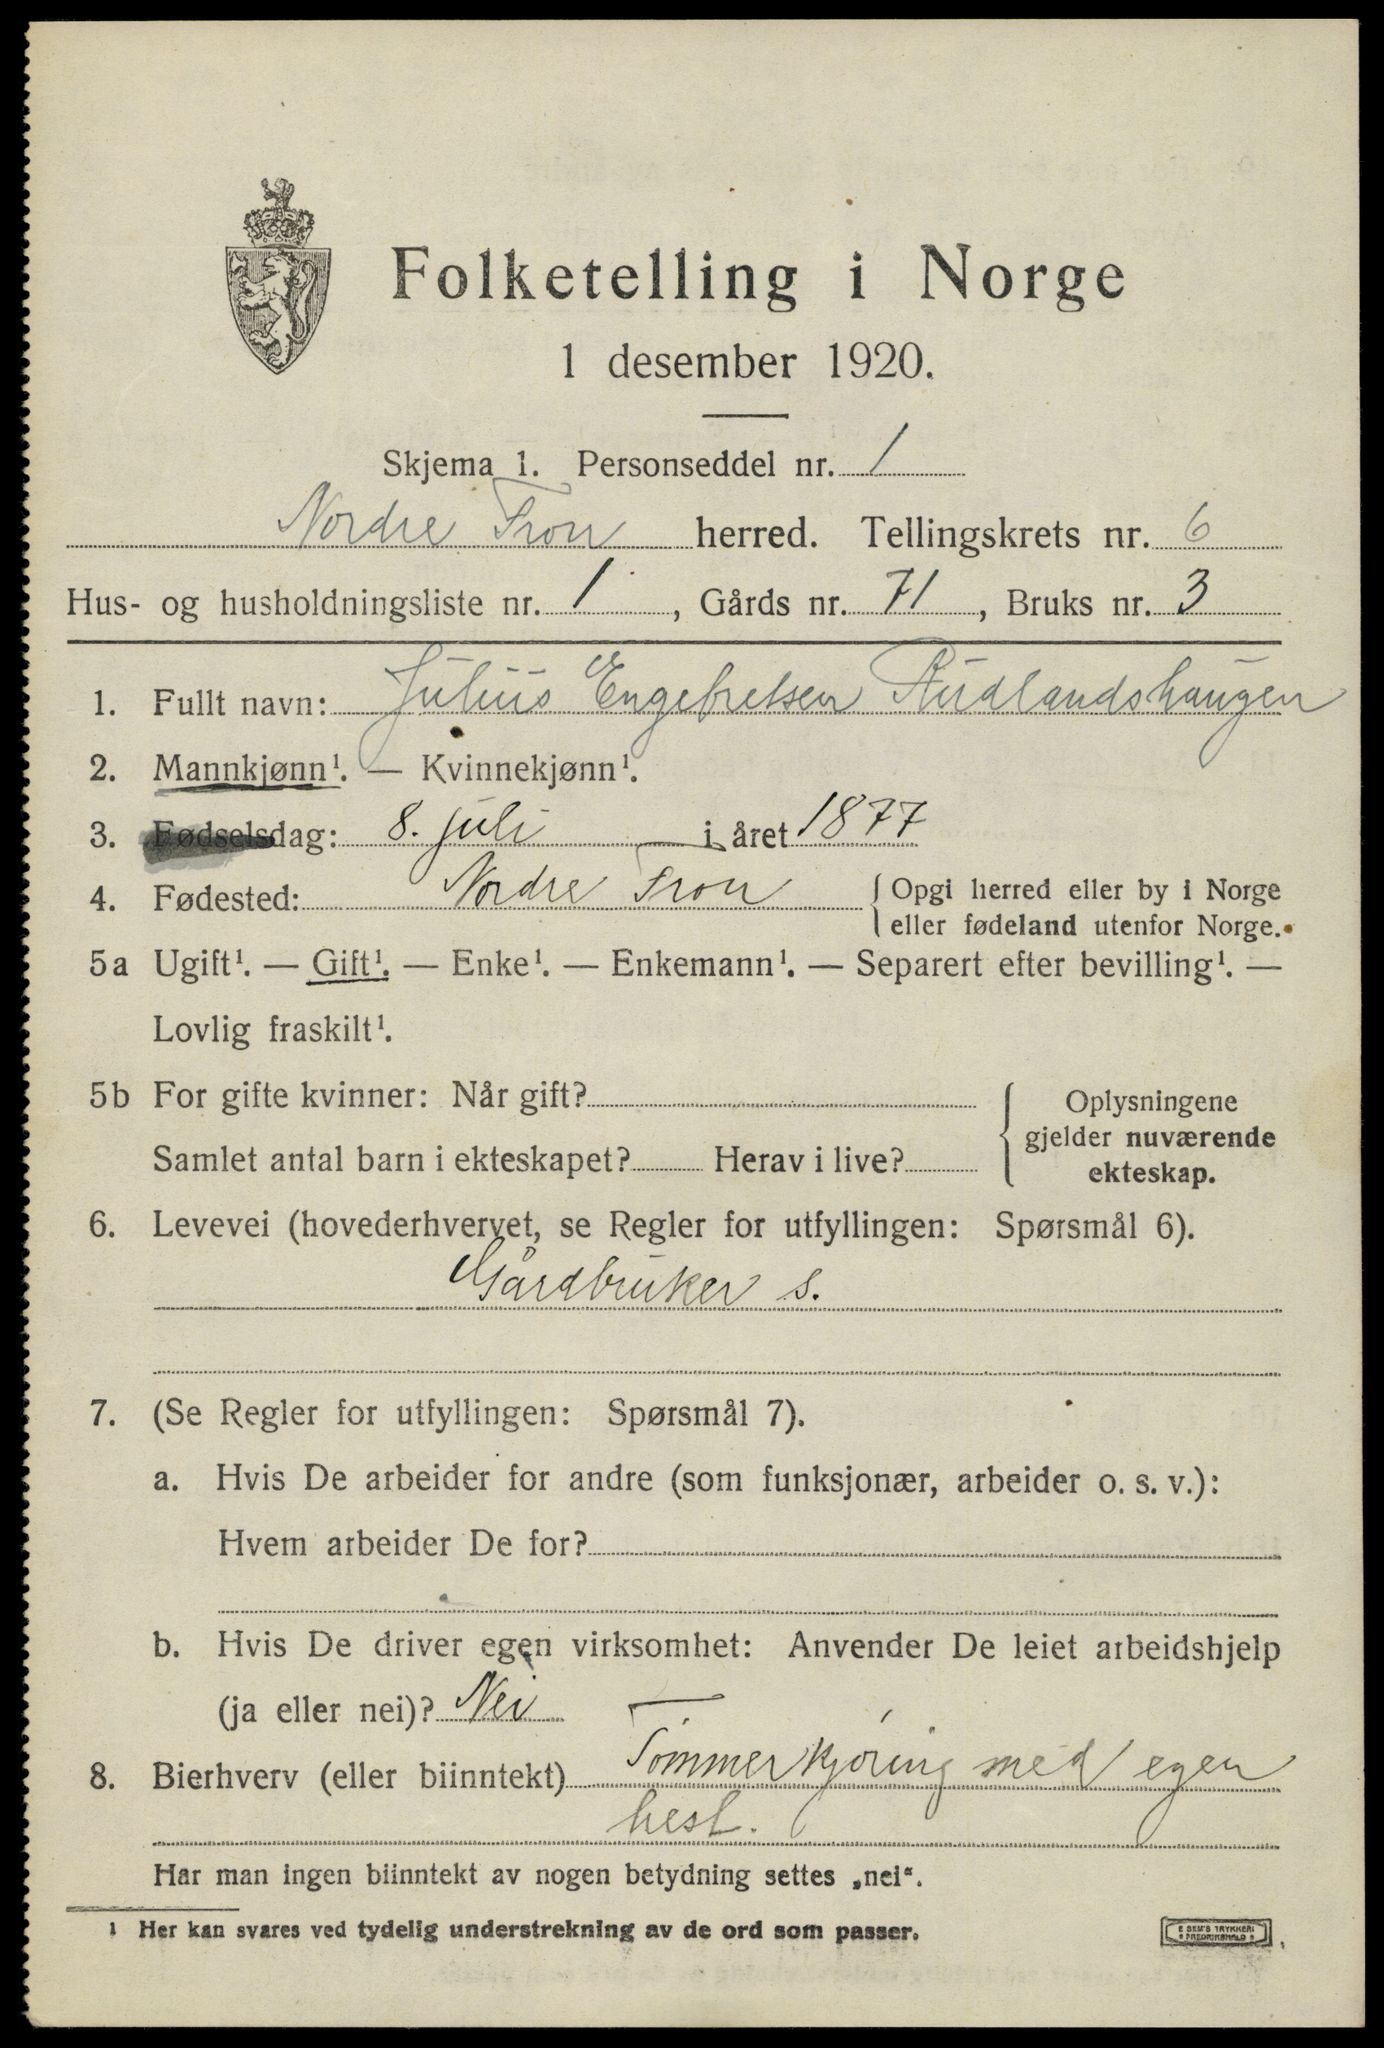 Folketelling i Norge
1 desember 1920.
Skjema 1. Personseddel nr. 1
Nordre Fron herred. Tellingskrets nr. 6
Hus- og husholdningsliste nr. 1, Gårds nr. 71, Bruks nr. 3
1. Fullt navn: Julius Engebretsen Rudlandshaugen
2. Mannkjønn¹. — Kvinnekjønn¹.
3. Fødselsdag: 8. juli i året 1877
4. Fødested: Nordre Fron { Opgi herred eller by i Norge
eller fødeland utenfor Norge.
5a Ugift¹. — Gift¹. — Enke¹. — Enkemann¹. — Separert efter bevilling¹. —
Lovlig fraskilt¹.
5b For gifte kvinner: Når gift?
Samlet antal barn i ekteskapet? Herav i live?
Oplysningene
gjelder nuværende
ekteskap.
6. Levevei (hovederhvervet, se Regler for utfyllingen: Spørsmål 6).
Gårdbruker s.
7. (Se Regler for utfyllingen: Spørsmål 7).
a. Hvis De arbeider for andre (som funksjonær, arbeider o. s. v.):
Hvem arbeider De for?
b. Hvis De driver egen virksomhet: Anvender De leiet arbeidshjelp
(ja eller nei)? Nei
8. Bierhverv (eller biinntekt) Tømmerkjøring med egen
hest.
Har man ingen biinntekt av nogen betydning settes „nei“.
¹ Her kan svares ved tydelig understrekning av de ord som passer.
E SEM'S TRYKKERI
FREDRIKSHALD